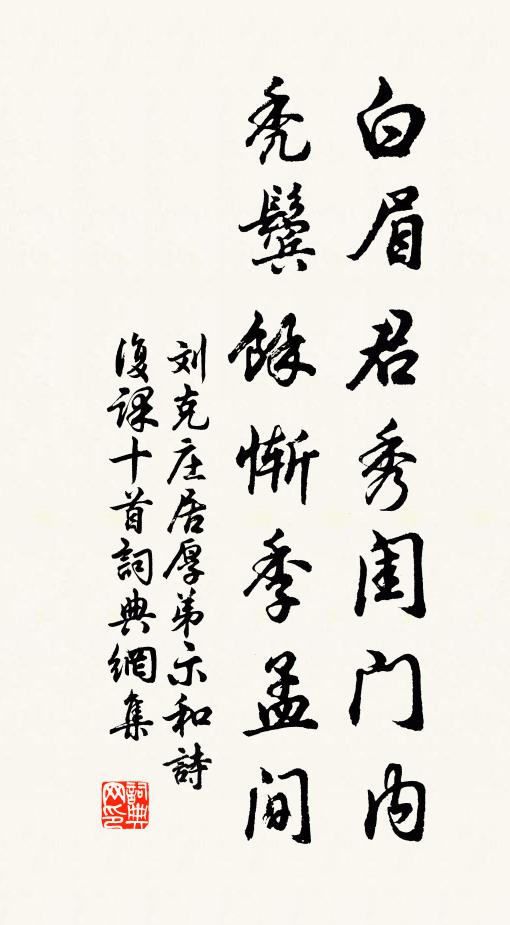 白眉君秀闺门内
秃鬓餘惭季孟间
刘克庄居厚弟示和詩
復課十首詞典網集
詞典网印